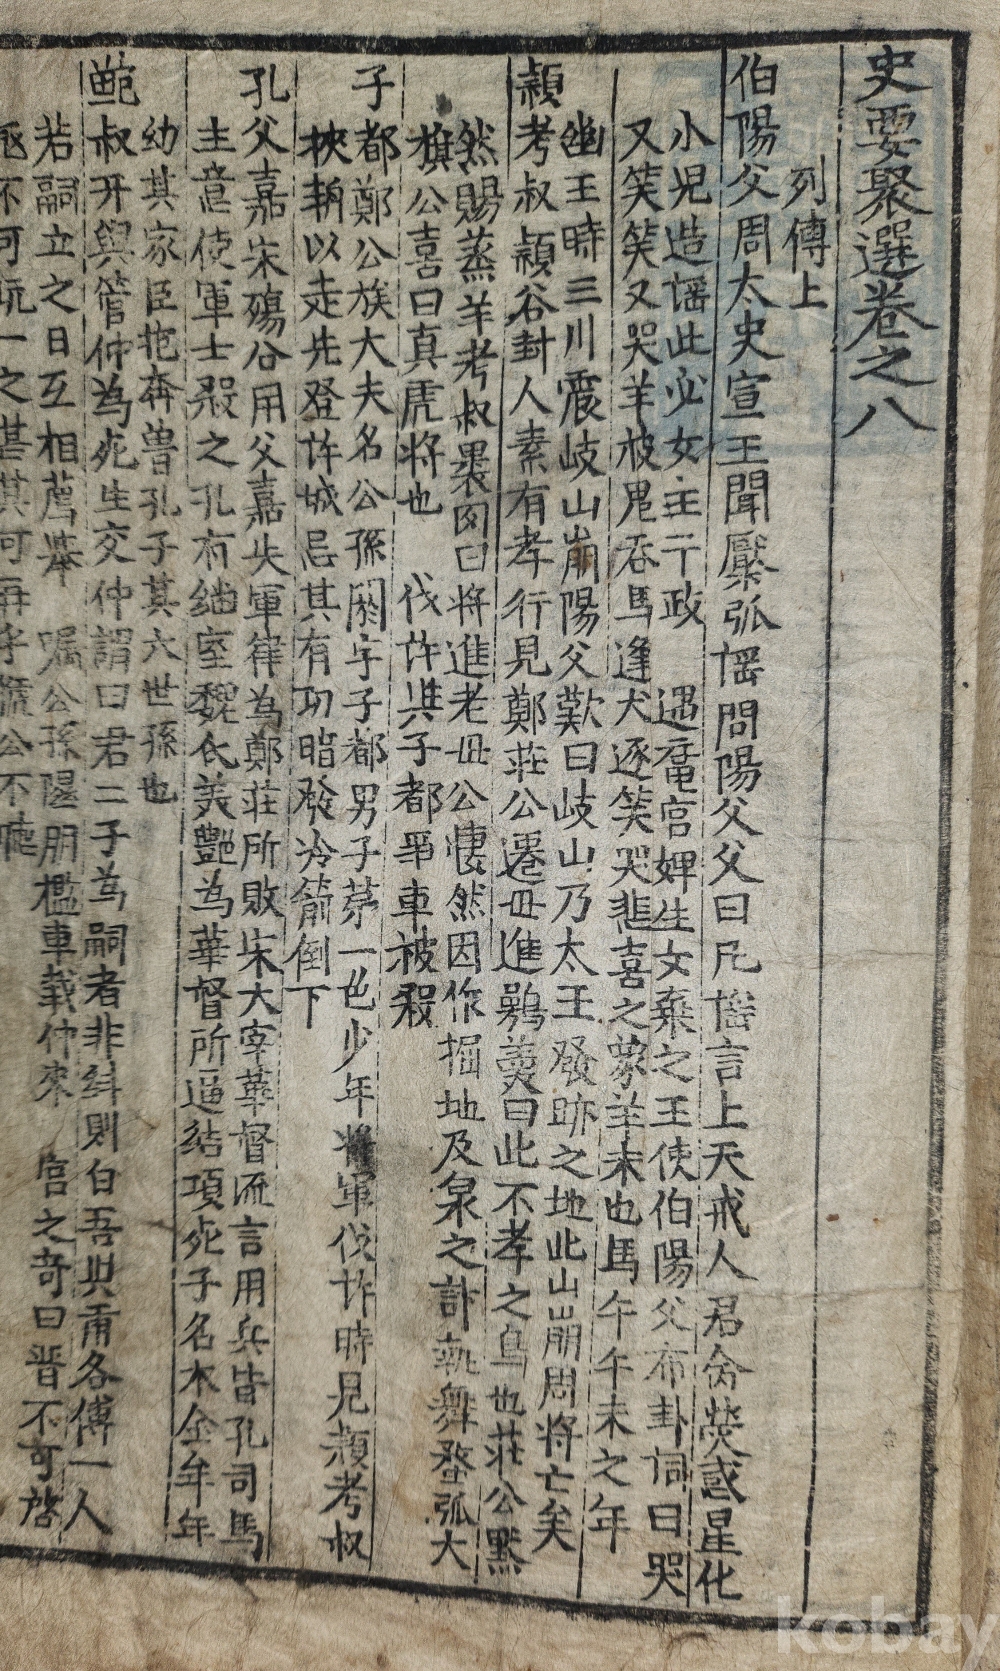 史要聚選卷之八
列傳上
伯陽父周太史宣王聞檿弧謠問陽父父曰凡謠言上天戒人君命熒惑星化
小兒造謠此必女主亍政　遇奄宮婢生女棄之王使伯陽父布卦詞曰哭
又笑笑又哭羊被鬼吞馬逢犬逐笑哭悲喜之象羊未也馬午午未之年
幽王時三川震岐山崩陽父歎曰岐山乃太王發跡之地此山崩周將亡矣
潁考叔潁谷封人素有孝行見鄭莊公遷毋進鶚羹曰此不孝之鳥也莊公黙
然賜蒸羊考叔裹肉曰將進老毋公悽然因作掘地及泉之計執舞蝥弧大
旗公喜曰真虎將也　伐許與子都爭車被殺
子都鄭公族大夫名公孫閼字子都男子苐一色少年將軍伐許時見潁考叔
挾輈以走先登許城忌其有功暗發冷箭倒下
孔父嘉宋殤公用父嘉失軍律為鄭莊所敗宋大宰華督流言用兵皆孔司馬
主意使軍士殺之孔有繼室魏氏美艶為華督所逼結項死子名木金年年
幼其家臣抱奔魯孔子其六世孫也
鮑叔牙與管仲為死生交仲謂曰君二子為嗣者非糾則白吾與甭各傅一人
若嗣立之日互相薦舉　嘱公孫隰朋檻車載仲來　宮之奇曰晋不可啓
不可玩一之甚其可再乎虢公不聽